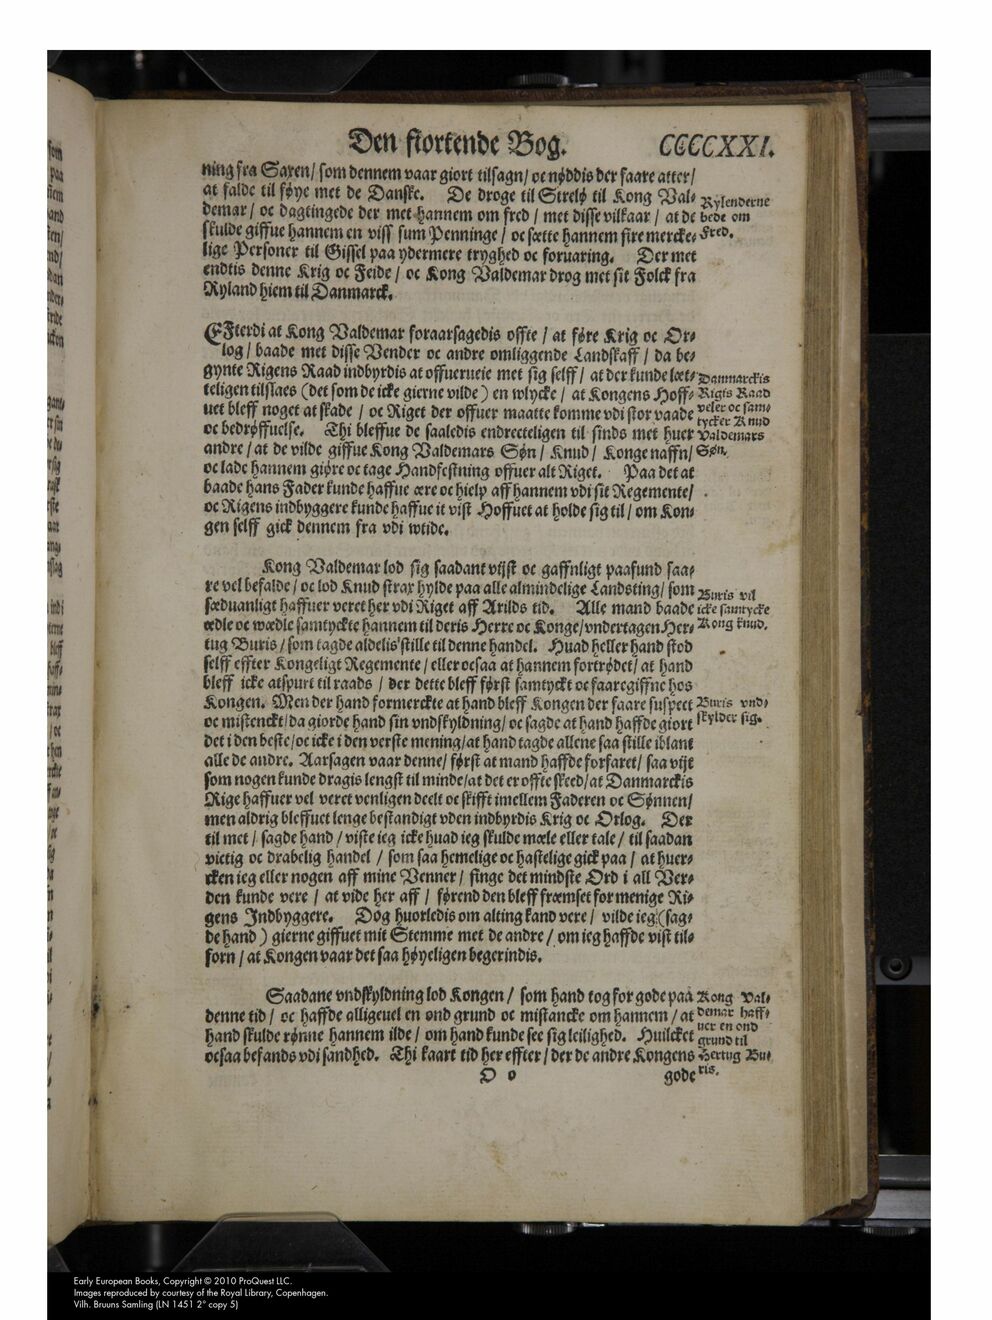 Den fiortende Bog. CCCCXXI.
ning fra Saxen/ som dennem vaar giort tilsagn/ oc nøddis der faare atter/
at falde til føye met de Danske. De droge til Strelø til Kong Val-
demar/ oc dagtingede der met hannem om fred / met disse vilkaar / at de
skulde giffue hannem en viss sum Penninge / oc sætte hannem fire mercke-
lige Personer til Gissel paa ydermere tryghed oc foruaring. Der met
endtis denne Krig oc Feide / oc Kong Valdemar drog met sit Folck fra
Ryland hiem til Danmarck.
Rylenderne
bede om
Fred.
EFterdi at Kong Valdemar foraarsagedis offte / at føre Krig oc Or-
log / baade met disse Vender oc andre omliggende Landskaff / da be-
gynte Rigens Raad indbyrdis at offuerueie met sig selff / at der kunde læt-
teligen tilslaes (det som de icke gierne vilde) en wlycke / at Kongens Hoff-
uet bleff noget at skade / oc Riget der offuer maatte komme vdi stor vaade
oc bedrøffuelse. Thi bleffue de saaledis endrecteligen til sinds met huer
andre / at de vilde giffue Kong Valdemars Søn / Knud / Konge naffn/
oc lade hannem giøre oc tage Handfestning offuer alt Riget. Paa det at
baade hans Fader kunde haffue ære oc hielp aff hannem vdi sit Regemente/
oc Rigens indbyggere kunde haffue it vist Hoffuet at holde sig til / om Kon-
gen selff gick dennem fra vdi wtide.
Danmarckis
Rigis Raad
veler oc sam-
tycker Knud
Valdemars
Søn.
Kong Valdemar lod sig saadant vijst oc gaffnligt paafund saa-
re vel befalde / oc lod Knud strax hylde paa alle almindelige Landsting/ som
sæduanligt haffuer veret her vdi Riget aff Arilds tid. Alle mand baade
ædle oc wædle samtyckte hannem til deris Herre oc Konge/ vndertagen Her-
tug Buris / som tagde aldelis stille til denne handel. Huad heller hand stod
selff effter Kongeligt Regemente / eller ocsaa at hannem fortrødet/ at hand
bleff icke atspurt til raads / der dette bleff først samtyckt oc faaregiffne hos
Kongen. Men der hand formerckte at hand bleff Kongen der faare suspect
oc mistenckt/ da giorde hand sin vndskyldning/ oc sagde at hand haffde giort
det i den beste/ oc icke i den verste mening/ at hand tagde allene saa stille iblant
alle de andre. Aarsagen vaar denne/ først at mand haffde forfaret/ saa vijt
som nogen kunde dragis lengst til minde/ at det er offte skeed/ at Danmarckis
Rige haffuer vel veret venligen deelt oc skifft imellem Faderen oc Sønnen/
men aldrig bleffuet lenge bestandigt vden indbyrdis Krig oc Orlog. Der
til met / sagde hand / viste ieg icke huad ieg skulde mæle eller tale / til saadan
victig oc drabelig handel / som saa hemelige oc hastelige gick paa / at huer-
cken ieg eller nogen aff mine Venner / finge det mindste Ord i all Ver-
den kunde vere / at vide her aff / førend den bleff fræmset for menige Ri-
gens Indbyggere. Dog huorledis om alting kand vere / vilde ieg (sag-
de hand ) gierne giffuet mit Stemme met de andre / om ieg haffde vist til-
forn / at Kongen vaar det saa høyeligen begerindis.
Buris vil
icke samtycke
Kong Knud.
Buris vnd-
skylder sig.
Saadane vndskyldning lod Kongen / som hand tog for gode paa
denne tid / oc haffde alligeuel en ond grund oc mistancke om hannem / at
hand skulde rønne hannem ilde / om hand kunde see sig leilighed. Huilcket
ocsaa befands vdi sandhed. Thi kaart tid her effter / der de andre Kongens
Kong Val-
demar haff-
uer en ond
grund til
Hertug Bu-
ris.
O o gode
Early European Books, Copyright © 2010 ProQuest LLC.
Images reproduced by courtesy of the Royal Library, Copenhagen.
Vilh. Bruuns Samling (LN 1451 2° copy 5)